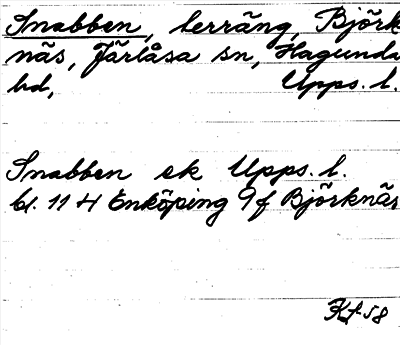 Snabben, terräng, Björk
näs, Järlåsa sn, Hagunda
hd, Upps. l.
Snabben ek Upps. l.
bl. 11 H Enköping 9f Björknäs
Kf 58